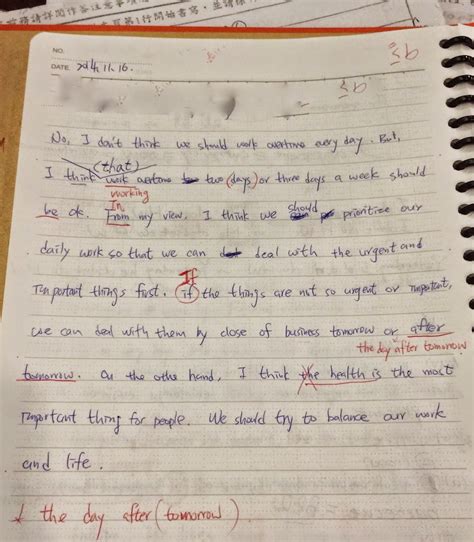 第1行開始書寫,並請保
NO.
DATE. 2014, 11, 16.
95
No, I don't think we should work overtime every day. But,
(that)
I think work overtime two (days) or three days a week should
working
be ok. In From my view, I think we should prioritize our
daily work so that we can deal with the urgent and
If
Important things first. if the things are not so urgent or Important,
we can deal with them by close of business tomorrow or after
the day after tomorrow
tomorrow. On the othe hand, I think the health is the most
Important thing for people. We should try to balance our work
and life.
* the day after (tomorrow)